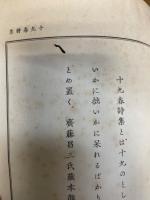 十九春詩集
十九春詩集とは十九のとし
いかに拙いかに呆れるばかり
とめ置く。齋藤昌三氏藏本飜